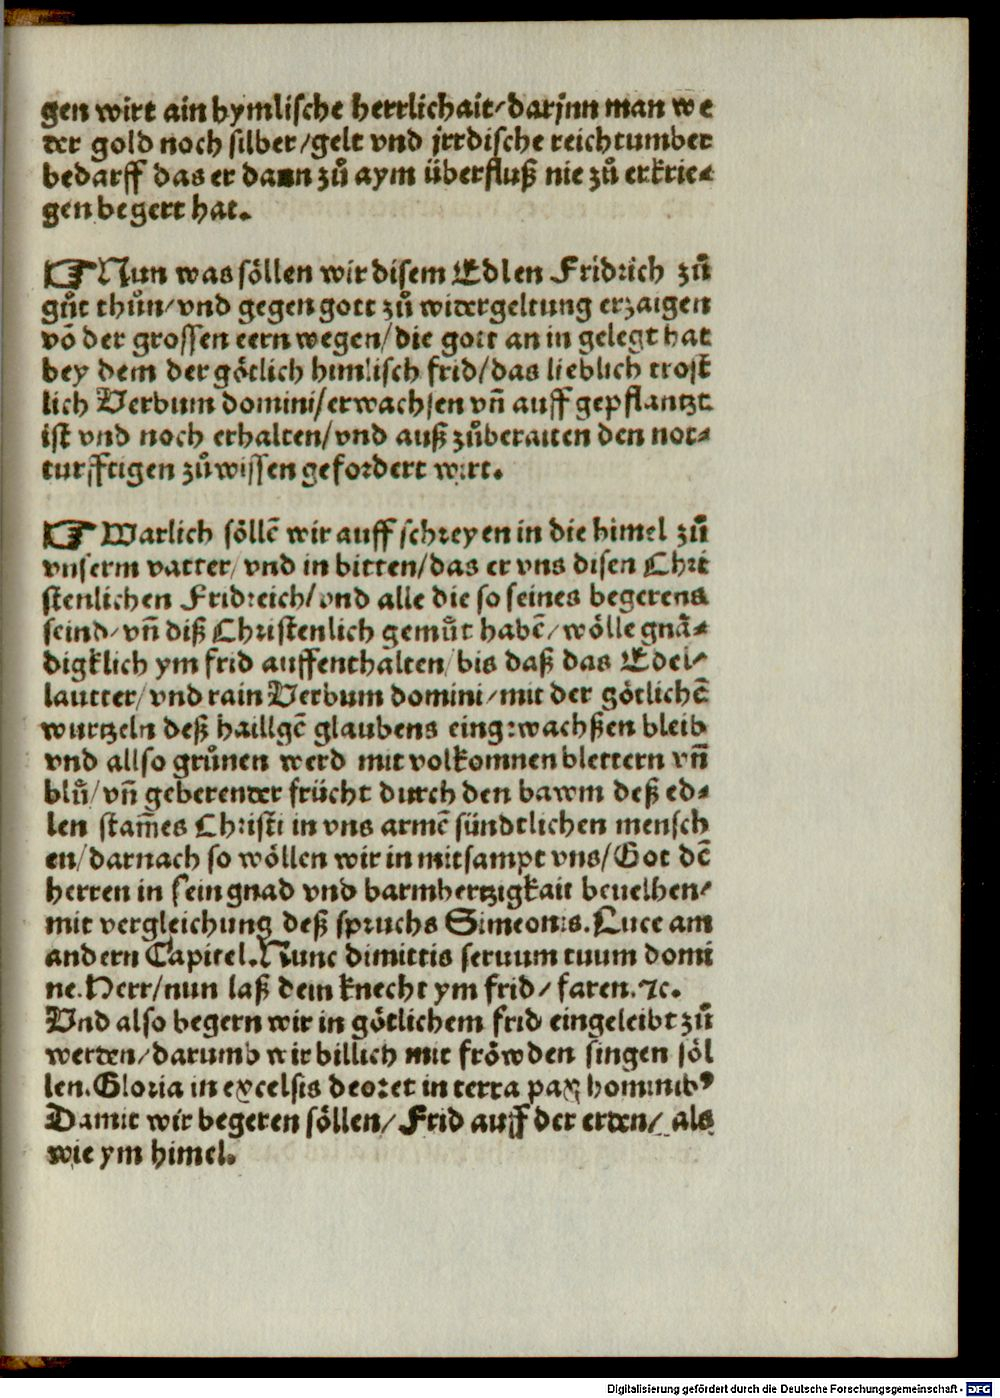 gen wirt ain hymlische herrlichait/darjnn man we
der gold noch silber/gelt vnd jrrdische reichtumber
bedarff das er dann zů aym überfluß nie zů erkrie⸗
gen begert hat.
☞Nun was söllen wir disem Edlen Fridrich zů
gůt thůn/vnd gegen gott zů widergeltung erzaigen
võ der grossen eern wegen/die gott an in gelegt hat
bey dem der götlich himlisch frid/das lieblich trost
lich Verbum domini/erwachsen vñ auff gepflantzt
ist vnd noch erhalten/vnd auß zůberaiten den not⸗
turfftigen zůwissen gefordert wirt.
☞Warlich söllẽ wir auff schreyen in die himel zů
vnserm vatter/vnd in bitten/das er vns disen Chri
stenlichen Fridreich/vnd alle die so seines begerens
seind/vñ diß Christenlich gemůt habẽ/wölle gnã⸗
digklich ym frid auffenthalten/bis daß das Edel/
lautter/vnd rain Verbum domini/mit der götlichẽ
wurtzeln deß haillgẽ glaubens eingewachßen bleib
vnd allso grůnen werd mit volkomnen blettern vñ
blů/vñ geberender frücht durch den bawm deß ed⸗
len stam̃es Christi in vns armẽ sündtlichen mensch
en/darnach so wöllen wir in mitsampt vns/Got dẽ
herren in sein gnad vnd barmhertzigkait beuelhen/
mit vergleichung deß spruchs Simeonis.Luce am
andern Capitel.Nunc dimittis seruum tuum domi
ne.Herr/nun laß dein knecht ym frid/faren.⁊c.
Vnd also begern wir in götlichem frid eingeleibt zů
werden/darumb wir billich mit fröwden singen söl
len.Gloria in excelsis deo⁊et in terra pax hominibꝰ
Damit wir begeren söllen/Frid auff der erden/als
wie ym himel.
Digitalisierung gefördert durch die Deutsche Forschungsgemeinschaft - DFG